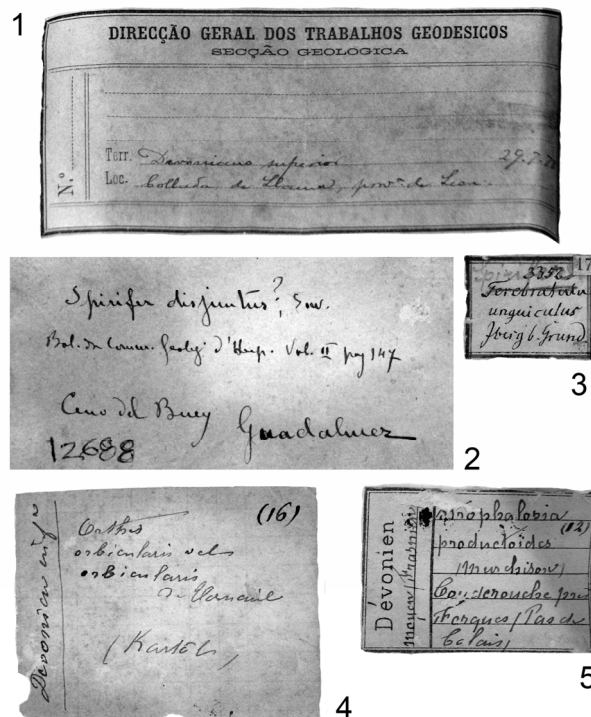 1
DIRECÇÃO GERAL DOS TRABALHOS GEODESICOS
SECÇÃO GEOLOGICA
N.º
Terr. Devoniano superior
Loc. Collada de Llama, prov.ª de Leon.
Spirifer disjuntus?, Sow.
Bol. da Comm. Geolog. d'Hesp. Vol. II pag 147
del Buey Guadalmez
12688
2
17
3352
Terebratula
unguiculus
Iberg b. Grund.
3
Devonien
(16)
Orthis
orbicularis
orbicularis
de Verneuil
4
Dévonien
moyen (Frasnien)
productoides (12)
(Murchison)
Ferques (Pas de
Calais)
5